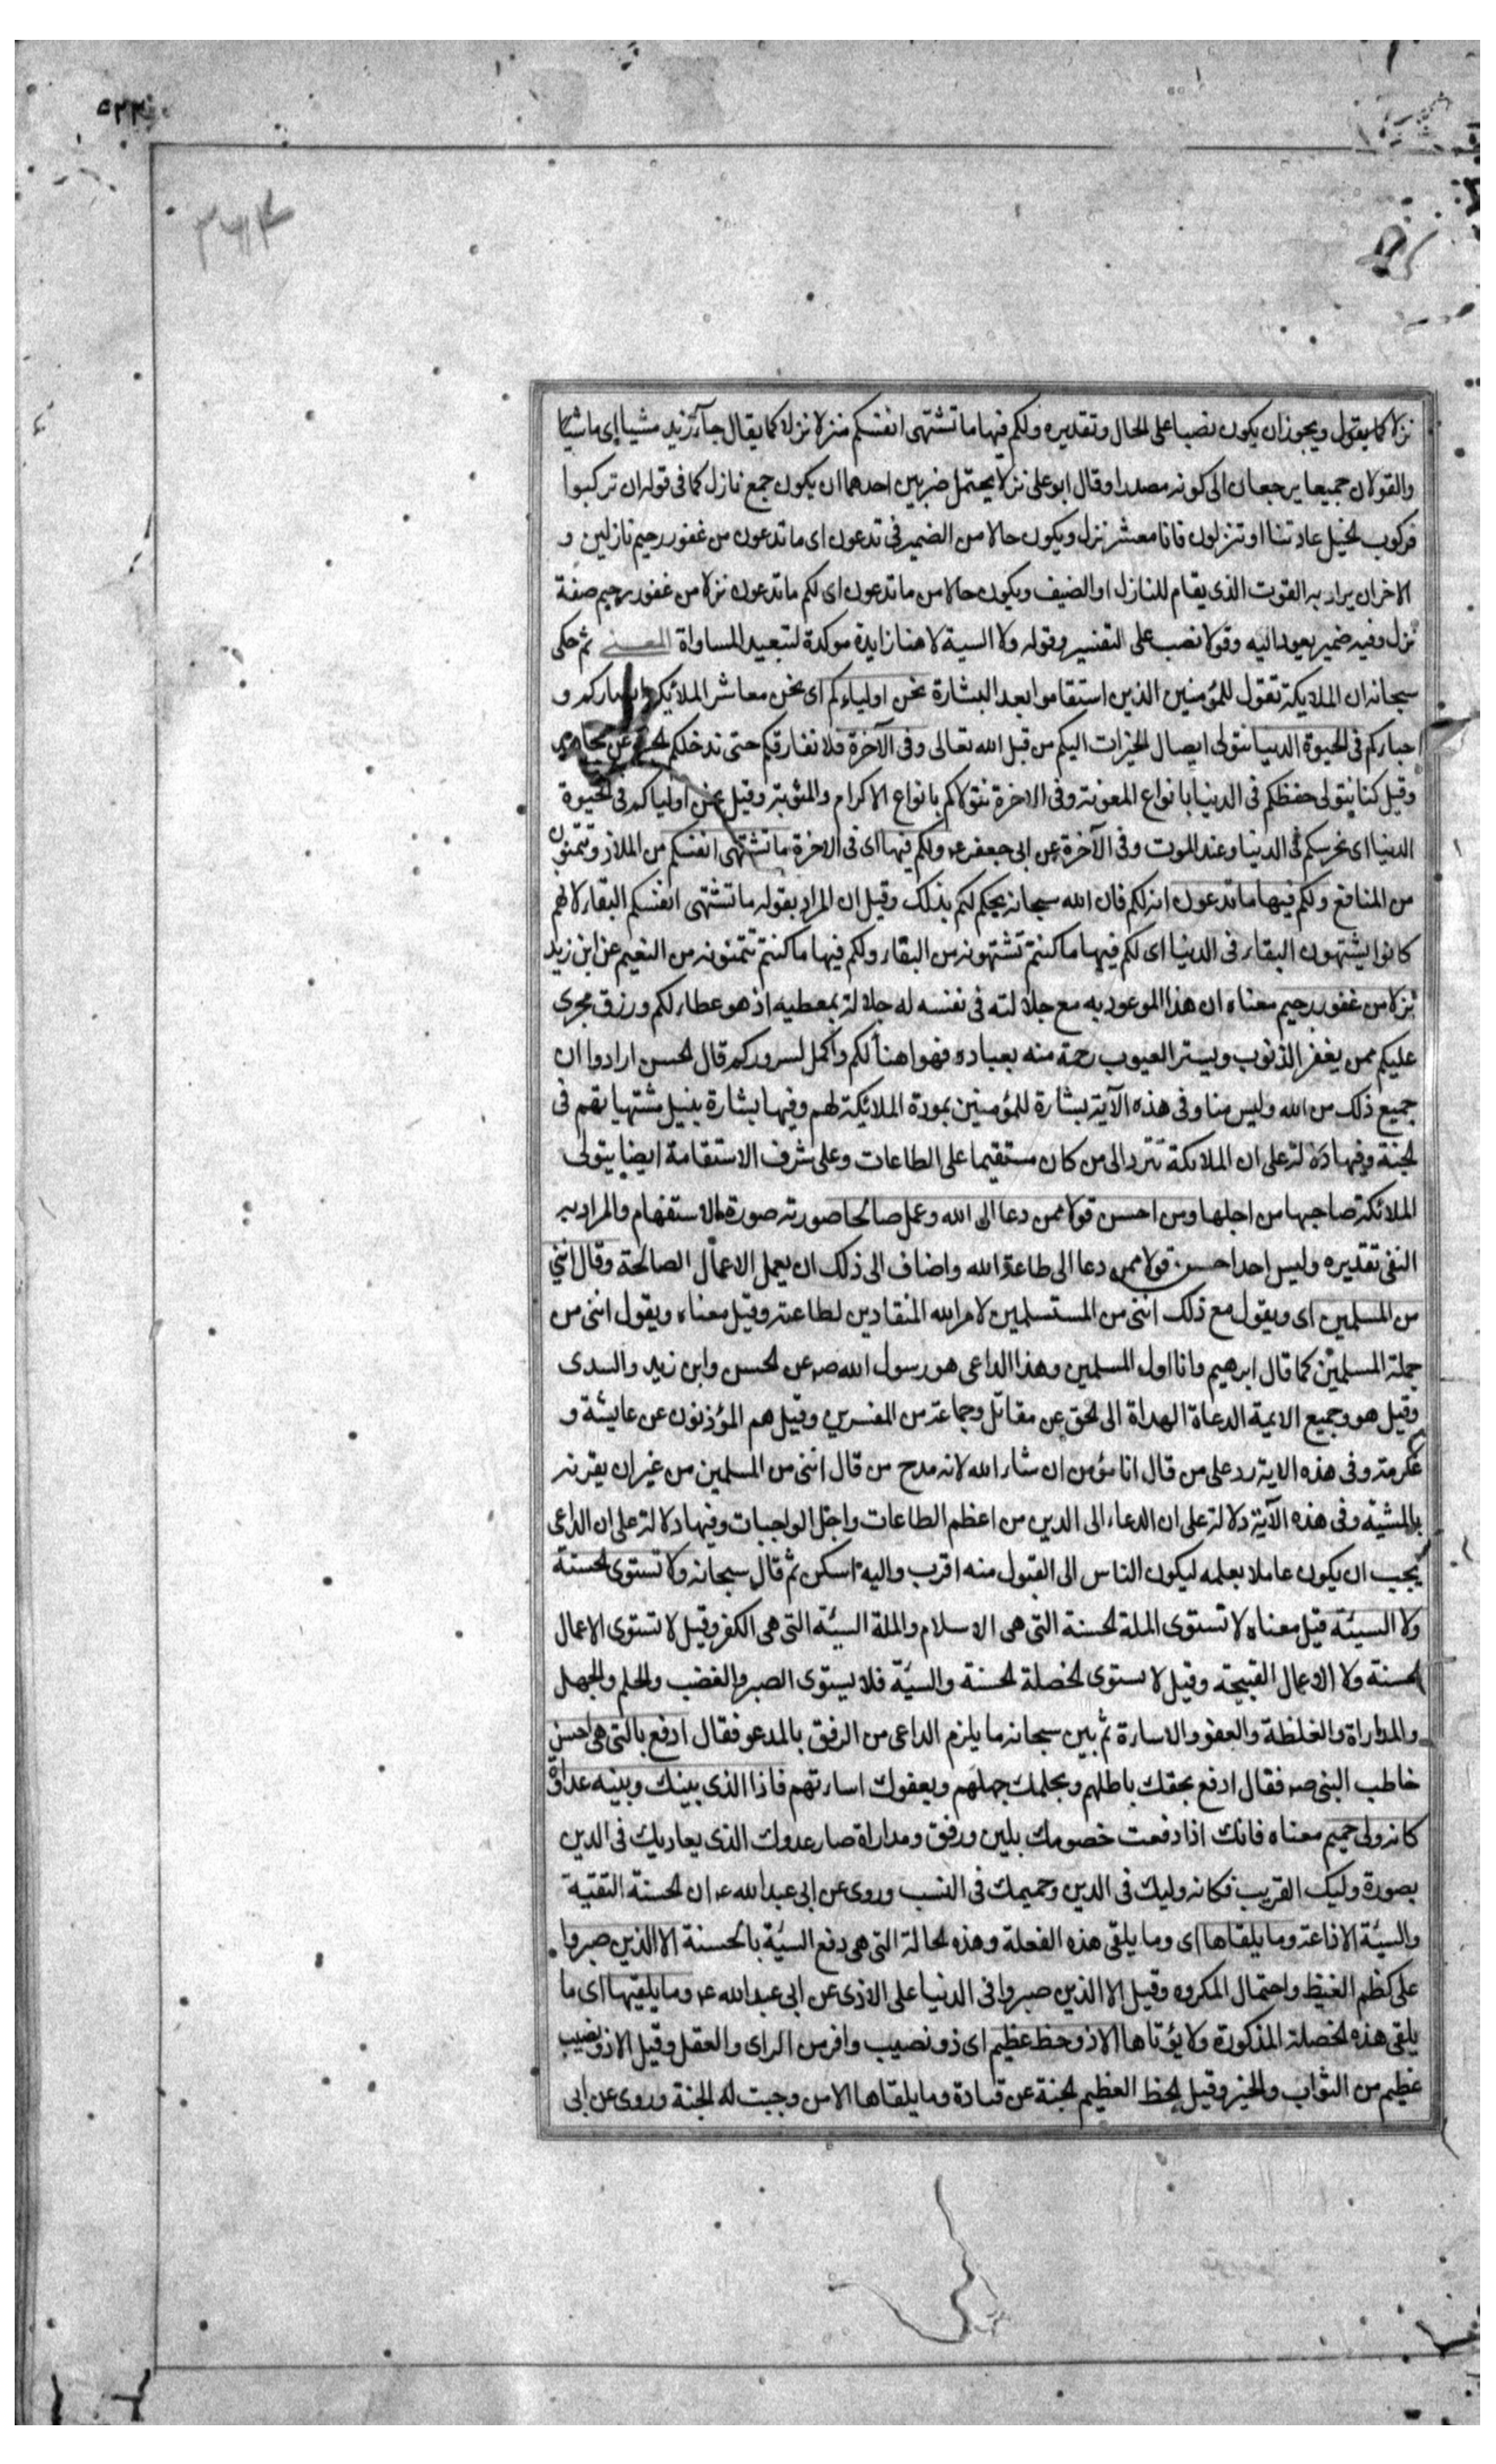 نزلا كما يقول ويجوز ان يكون نصبا على الحال وتقديره ولكم فيها ما تشتهى انفسكم منزلا نزلا كما يقال جآء زيد مشيا اى ماشيا
والقولان جميعا يرجعان الى كونه مصدرا وقال ابو على نزلا يحتمل ضربين احدهما ان يكون جمع نازل كما فى قوله ان تركبوا
فركوب لخيل عادتنا او تنزلون فانا معشر نزل ويكون حالا من الضمير فى تدعون اى ما تدعون من غفور رحيم نازلين و
الاخر ان يراد به القوت الذى يقام للنازل او الضيف ويكون حالا من ما تدعون اى لكم ما تدعون نزلا من غفور رحيم صفة
نزل وفيه ضمير يعود اليه وقولا نصب على التفسير وقوله ولا السية لا هنا زايدة موكدة لتبعيد المساواة المعنى ثم حكى
سبحانه ان الملايكة تقول للمؤمنين الذين استقاموا بعد البشارة نحن اولياءكم اى نحن معاشر الملائكة انصاركم و
احباركم فى لحيوة الدنيا نتولى ايصال لخيرات اليكم من قبل الله تعالى وفى الآخرة فلا نفارقكم حتى ندخلكم لجنة عن مجاهد
وقيل كنا نتولى حفظكم فى الدنيا بانواع المعونة وفى الاخرة نتولاكم بانواع الاكرام والمثوبة وقيل نحن اولياكم فى لحيوة
الدنيا اى نحرسكم فى الدنيا وعند الموت وفى الآخرة عن ابى جعفر ع ولكم فيها اى فى الاخرة ما تشتهى انفسكم من الملاذ وتتمنون
من المنافع ولكم فيها ما تدعون انه لكم فان الله سبحانه يحكم لكم بذلك وقيل ان المراد بقوله ما تشتهى انفسكم البقاء لانهم
كانوا يشتهون البقاء فى الدنيا اى لكم فيها ما كنتم تشتهونه من البقاء ولكم فيها ما كنتم تتمنونه من النعيم عن ابن زيد
نزلا من غفور رحيم معناه ان هذا الموعود به مع جلالته فى نفسه له جلالة بمعطيه اذ هو عطاء لكم ورزق مجرى
عليكم ممن يغفر الذنوب ويستر العيوب رحمة منه بعباده فهو اهنأ لكم واكمل لسروركم قال لحسن ارادوا ان
جميع ذلك من الله وليس منا وفى هذه الآية بشارة للمؤمنين بمودة الملائكة لهم وفيها بشارة بنيل مشتهياتهم فى
لجنة وفيها دلالة على ان الملائكة تتردد الى من كان مستقيما على الطاعات وعلى شرف الاستقامة ايضا يتولى
الملائكة صاحبها من اجلها ومن احسن قولا ممن دعا الى الله وعمل صالحا صورته صورة الاستفهام والمراد به
النفى تقديره وليس احد احسن قولا ممن دعا الى طاعة الله واضاف الى ذلك ان يعمل الاعمال الصالحة وقال اننى
من المسلمين اى ويقول مع ذلك اننى من المستسلمين لامر الله المنقادين لطاعته وقيل معناه ويقول اننى من
جملة المسلمين كما قال ابرهيم وانا اول المسلمين وهذا الداعى هو رسول الله ص عن لحسن وابن زيد والسدى
وقيل هو وجميع الايمة الدعاة الهداة الى لحق عن مقاتل وجماعة من المفسرين وقيل هم المؤذنون عن عايشة و
عكرمة وفى هذه الاية رد على من قال انا مؤمن ان شاء الله لانه مدح من قال اننى من المسلمين من غير ان يقرنه
بالمشية وفى هذه الآية دلالة على ان الدعاء الى الدين من اعظم الطاعات واجل الواجبات وفيها دلالة على ان الداعى
يجب ان يكون عاملا بعلمه ليكون الناس الى القبول منه اقرب واليه اسكن ثم قال سبحانه ولا تستوى لحسنة
ولا السيئة قيل معناه لا تستوى الملة لحسنة التى هى الاسلام والملة السيئة التى هى الكفر وقيل لا تستوى الاعمال
لحسنة ولا الاعمال القبيحة وقيل لا يستوى لخصلة لحسنة والسيّة فلا يستوى الصبر والغضب ولحلم ولجهل
والمداراة والغلظة والعفو والاساءة ثم بين سبحانه ما يلزم الداعى من الرفق بالمدعو فقال ادفع بالتى هى احسن
خاطب النبى ص فقال ادفع بحقك باطلهم وبحلمك جهلهم وبعفوك اساءتهم فاذا الذى بينك وبينه عداوة
كانه ولى حميم معناه فانك اذا دفعت خصومك بلين ورفق ومداراة صار عدوك الذى يعاديك فى الدين
بصورة وليك القريب فكانه وليك فى الدين وحميمك فى النسب وروى عن ابى عبد الله ع ان لحسنة التقية
والسيّة الاذاعة وما يلقاها اى وما يلقى هذه الفعلة وهذه لحالة التى هى دفع السيّة بالحسنة الا الذين صبروا
على كظم الغيظ واحتمال المكروه وقيل الا الذين صبروا فى الدنيا على الاذى عن ابى عبد الله ع وما يلقيها اى ما
يلقى هذه لخصلة المذكورة ولا يؤتاها الا ذو حظ عظيم اى ذو نصيب وافر من الراى والعقل وقيل الا ذو نصيب
عظيم من الثواب والخير وقيل لحظ العظيم لجنة عن قتادة وما يلقاها الا من وجبت له الجنة وروى عن ابى